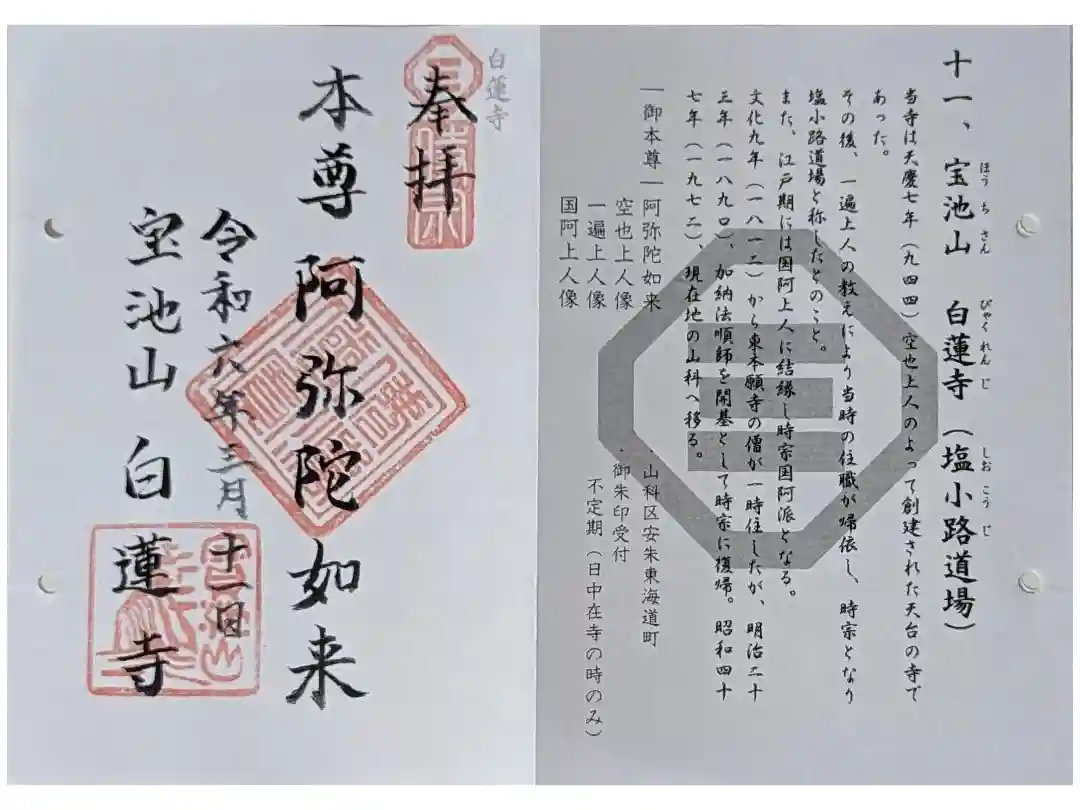 ほうちさん びゃくれんじ しおこうじ
十一、宝池山 白蓮寺（塩小路道場）
当寺は天慶七年（九四四）空也上人のよって創建された天台の寺で
あった。
その後、一遍上人の教えにより当時の住職が帰依し、時宗となり
塩小路道場と称したとのこと。
また、江戸期には国阿上人に結縁し時宗国阿派となる。
文化九年（一八一二）から東本願寺の僧が一時住したが、明治二十
三年（一八九〇）、加納法順師を開基として時宗に復帰。昭和四十
七年（一九七二、現在地の山科へ移る。
―御本尊―阿弥陀如来
空也上人像
一遍上人像
国阿上人像
・山科区安朱東海道町
・御朱印受付
不定期（日中在寺の時のみ）
白蓮寺
奉拝
本尊阿弥陀如来
令和六年三月十一日
宝池山白蓮寺